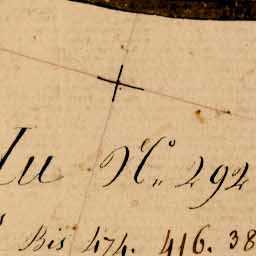 Au N.° 292
Bis 474. 416. 38